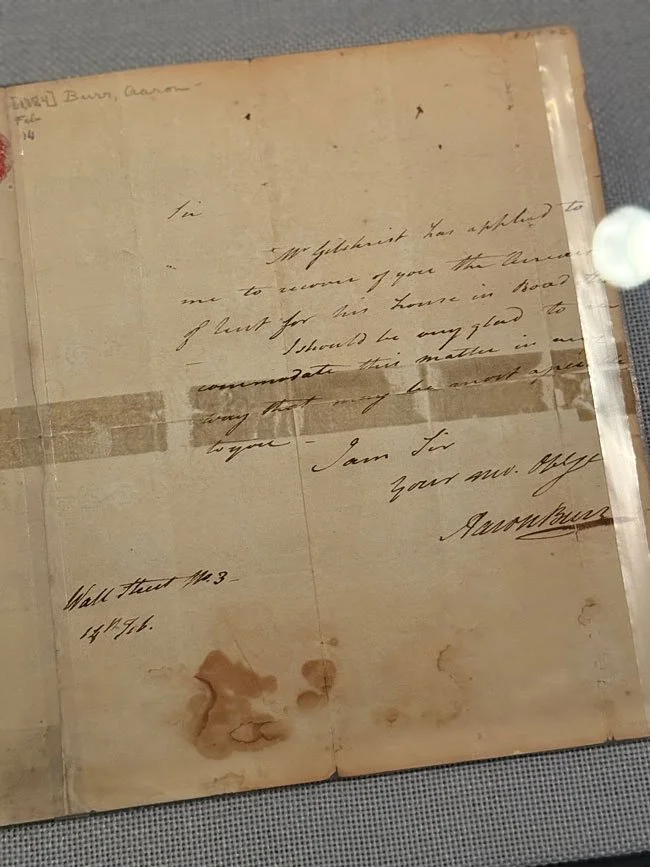 [1784] Burr, Aaron -
Feb
14
Sir
Mr Gilchrist has applied to
me to recover of you the
of rent for his house in Road
I should be very glad to
commodate this matter in
way that may be most
to you - I am Sir
Your
Aaron Burr
Wall Street No. 3 -
14th Feb.